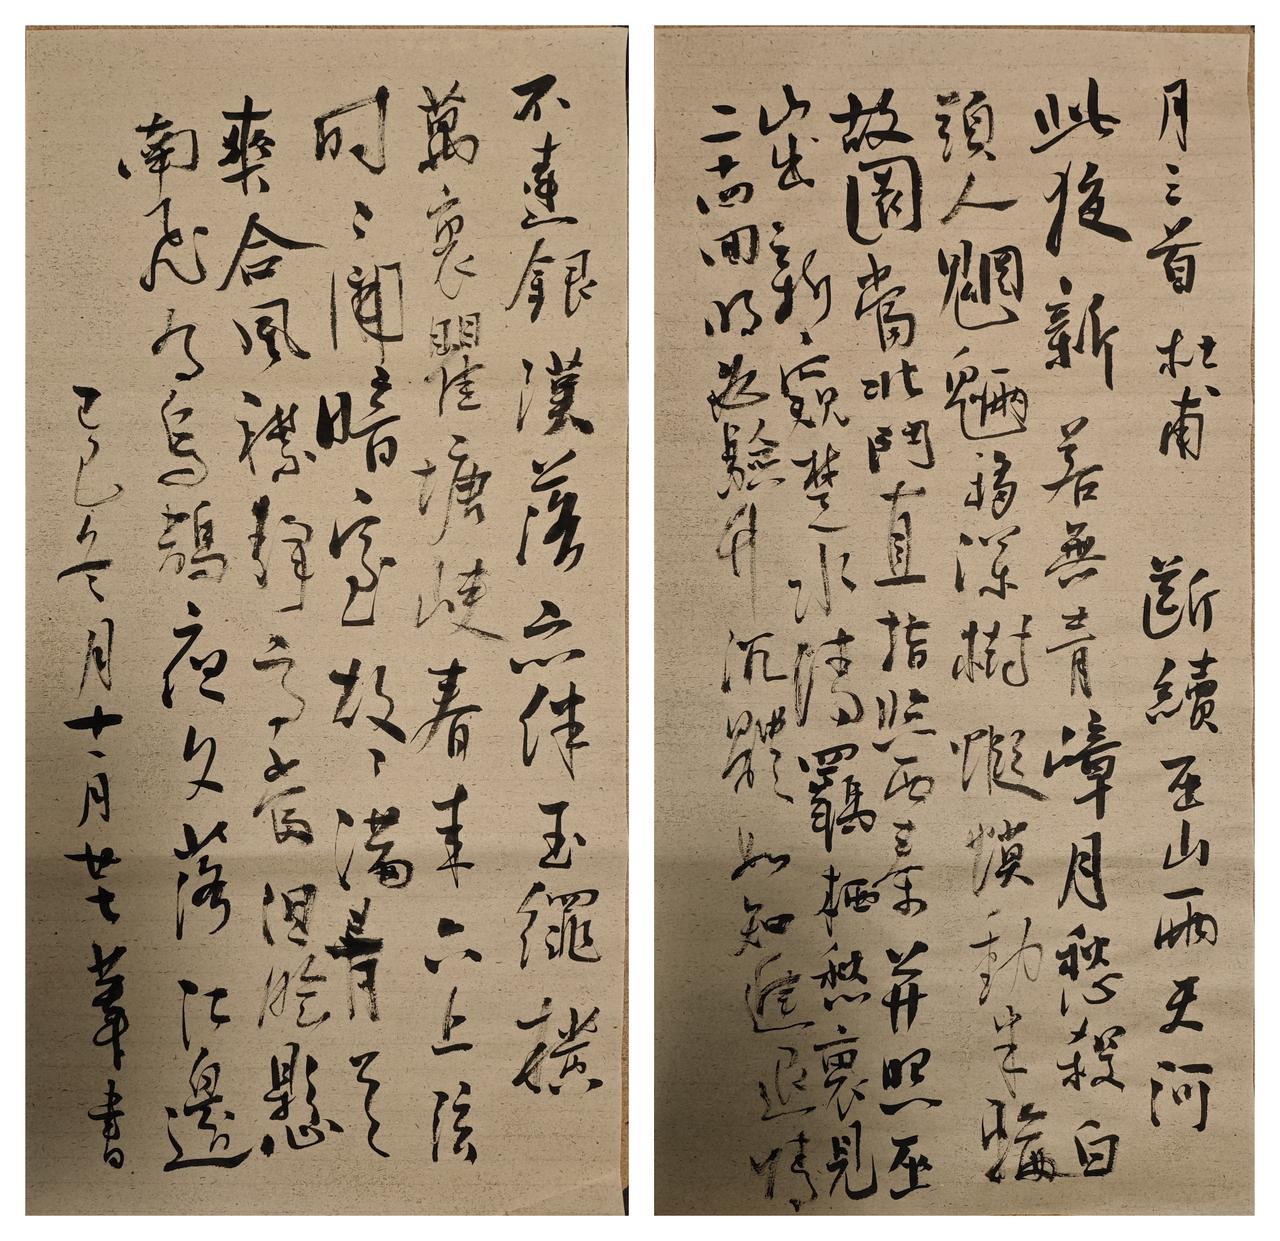 月三首 杜甫 斷續巫山雨天河
此夜新若無青嶂月愁殺白
頭人魍魎移深樹蝦蟆動半輪
故園當北鬥直指照西秦并照巫
山出新窺楚水清羈栖愁裏見
二十四回明必驗升沉體如知進退情
不違銀漢落亦伴玉繩橫
萬裏瞿塘峽春来六上弦
时々開暗室故々滿青天
爽合風襟靜高當泪臉懸
南飛有烏鵲夜久落江邊
乙巳冬月十一月廿七華書